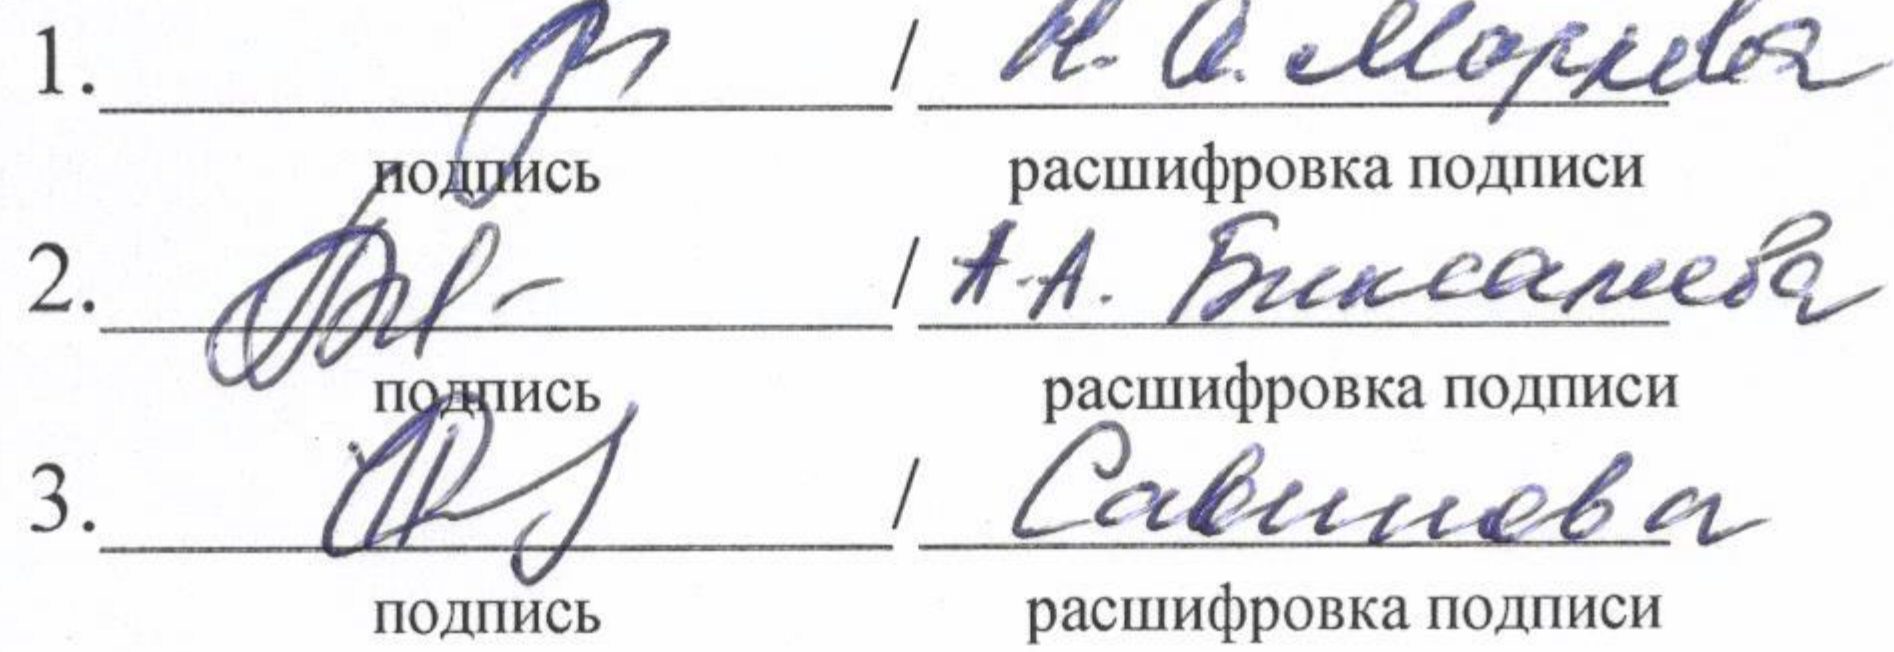 1. / Н. А. Маркова
подпись расшифровка подписи
2. / А.А. Биксалиева
подпись расшифровка подписи
3. / Савинова
подпись расшифровка подписи